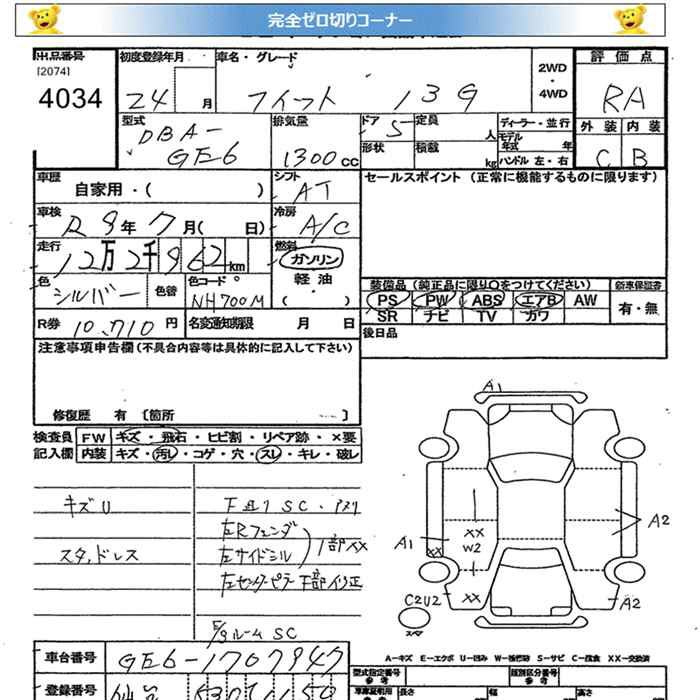 完全ゼロ切りコーナー
出品番号
[2074]
4034
初度登録年月
24 月
車名・グレード
フィット 13G
2WD
・
4WD
評価点
RA
外装 内装
C B
型式
DBA-
GE6
排気量
1300cc
ドア 5
定員 人
形状
積載 kg
ディーラー・並行
モデル
年式 年
ハンドル 左・右
車歴
自家用・( )
シフト
AT
セールスポイント (正常に機能するものに限ります)
車検
R 9年 7月( 日)
冷房
A/C
走行
12万2千962km
燃料
ガソリン
軽油
( )
色
シルバー
色替
色コード
NH700M
装備品 (純正品に限り○をつけてください)
新車保証書
PS PW ABS エアB AW
SR ナビ TV カワ
有・無
R券 10,710円
名変通知期限 月 日
後日品
注意事項申告欄 (不具合内容等は具体的に記入して下さい)
修復歴 有 〔箇所 〕
検査員
記入欄
FW キズ・飛石・ヒビ割・リペア跡・×要
内装 キズ・汚レ・コゲ・穴・スレ・キレ・破レ
キズU
スタッドレス
下廻りSC・
左Rフェンダ
左サイドシル
左センターピラー下部修正
ルームSC
A1
A1
XX
XX
W2
XX
A2
A2
C2U2
スペア
A―キズ E―エクボ U―凹み W―補修跡 S―サビ C―腐食 XX―交換済
車台番号 GE6-1707947
登録番号 仙台
型式指定番号
類別区分番号
参考
長さ 幅 高さ